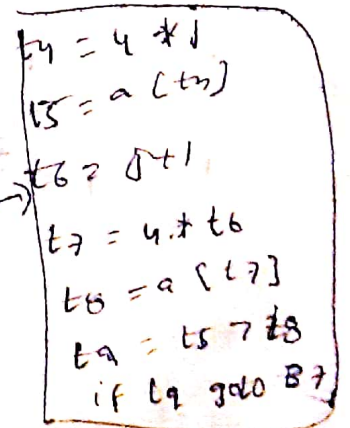 t4 = 4 * j
t5 = a [t4]
t6 = j+1
t7 = 4 * t6
t8 = a [t7]
t9 = t5 > t8
if t9 goto B7